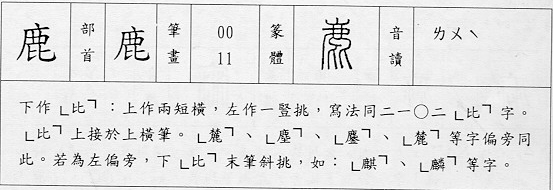 鹿 部首 鹿 筆畫 00 11 篆體 鹿 音讀 ㄌㄨˋ
下作「比」：上作兩短橫，左作一豎挑，寫法同二一○二「比」字。
「比」上接於上橫筆。「麓」、「塵」、「鏖」、「麓」等字偏旁同
此。若為左偏旁，下「比」末筆斜挑，如：「麒」、「麟」等字。